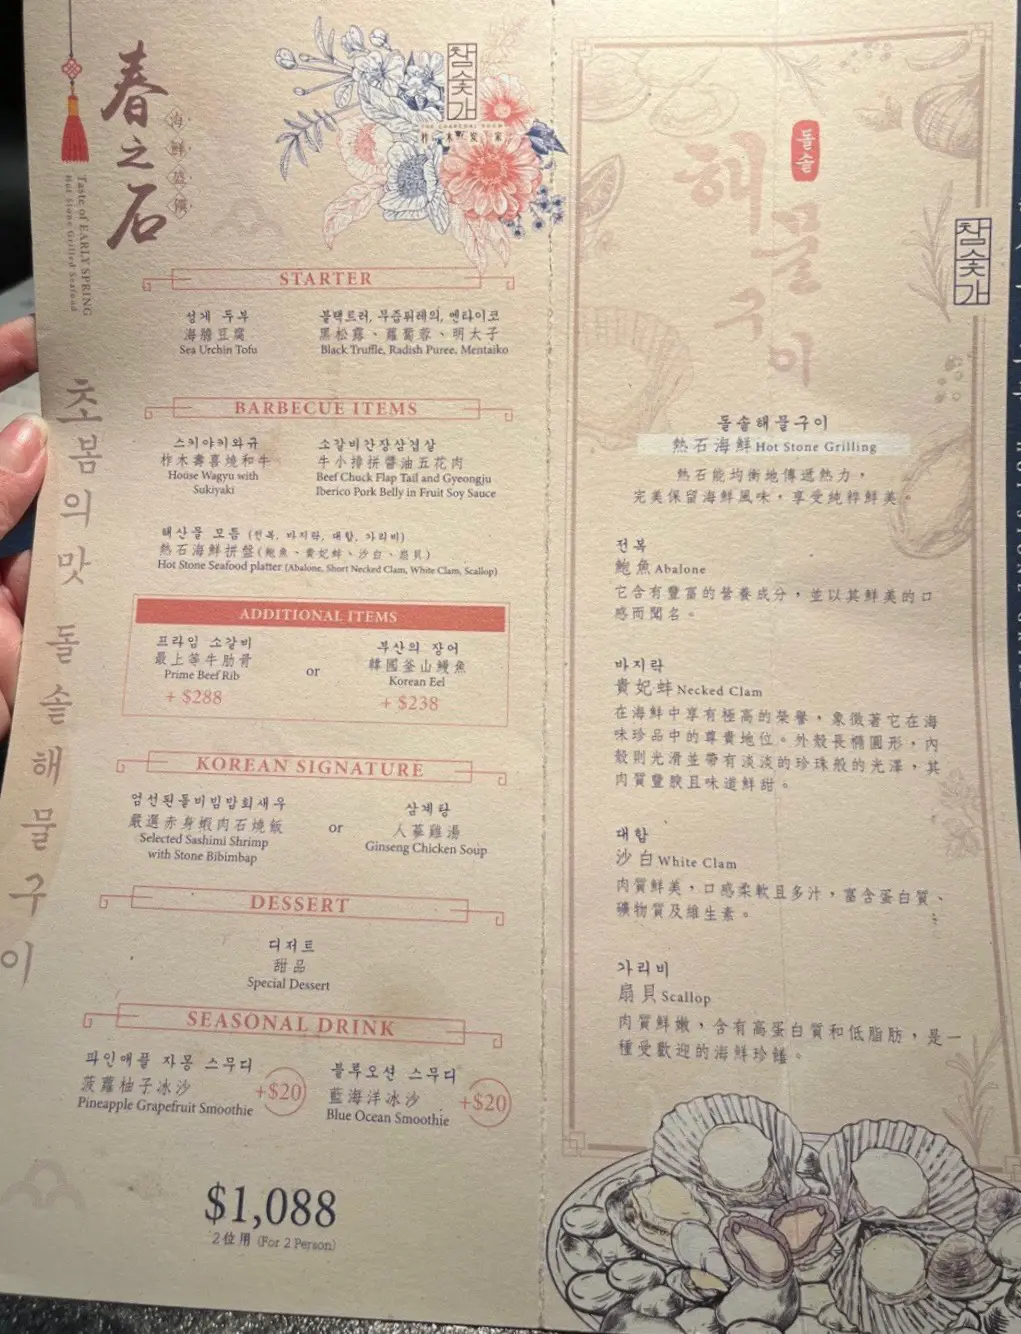 春之石
海鮮盛饌
Taste of EARLY SPRING
Hot Stone Grilled Seafood
초봄의맛 돌솥해물구이
참숯가
STARTER
성게 두부
海膽豆腐
Sea Urchin Tofu
블랙트러, 무즙퓌레의, 멘타이코
黑松露、蘿蔔蓉、明太子
Black Truffle, Radish Puree, Mentaiko
BARBECUE ITEMS
스키야키와규
柞木壽喜燒和牛
House Wagyu with
Sukiyaki
소갈비간장삼겹살
牛小排拼醬油五花肉
Beef Chuck Flap Tail and Gyeongju
Iberico Pork Belly in Fruit Soy Sauce
해산물 모둠 (전복, 바지락, 대합, 가리비)
熱石海鮮拼盤(鮑魚、貴妃蚌、沙白、扇貝)
Hot Stone Seafood platter (Abalone, Short Necked Clam, White Clam, Scallop)
ADDITIONAL ITEMS
프라임 소갈비
最上等牛肋骨
Prime Beef Rib
+ $288
or
부산의 장어
韓國釜山鰻魚
Korean Eel
+ $238
KOREAN SIGNATURE
엄선된돌비빔밥회새우
嚴選赤身蝦肉石燒飯
Selected Sashimi Shrimp
with Stone Bibimbap
or
삼계탕
人蔘雞湯
Ginseng Chicken Soup
DESSERT
디저트
甜品
Special Dessert
SEASONAL DRINK
파인애플 자몽 스무디
菠蘿柚子冰沙
Pineapple Grapefruit Smoothie
+$20
블루오션 스무디
藍海洋冰沙
Blue Ocean Smoothie
+$20
$1,088
2位用 (For 2 Person)
돌솥
해물구이
참숯가
돌솥해물구이
熱石海鮮 Hot Stone Grilling
熱石能均衡地傳遞熱力，
完美保留海鮮風味，享受純粹鮮美。
전복
鮑魚 Abalone
它含有豐富的營養成分，並以其鮮美的口
感而聞名。
바지락
貴妃蚌 Necked Clam
在海鮮中享有極高的榮譽，象徵著它在海
味珍品中的尊貴地位。外殼長橢圓形，內
殼則光滑並帶有淡淡的珍珠般的光澤，其
肉質豐腴且味道鮮甜。
대합
沙白 White Clam
肉質鮮美，口感柔軟且多汁，富含蛋白質、
礦物質及維生素。
가리비
扇貝 Scallop
肉質鮮嫩，含有高蛋白質和低脂肪，是一
種受歡迎的海鮮珍饈。